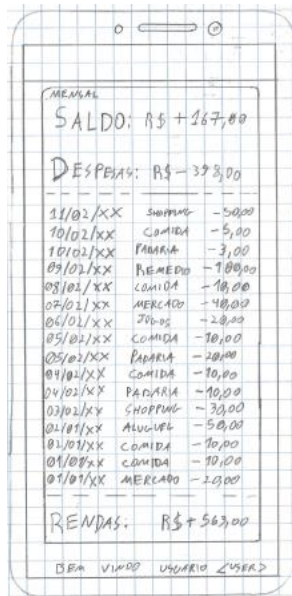 MENSAL
SALDO: R$ +167,00
DESPESAS: R$ -398,00
11/02/XX SHOPPING -50,00
10/02/XX COMIDA -5,00
10/02/XX PADARIA -3,00
09/02/XX REMEDIO -100,00
08/02/XX COMIDA -10,00
07/02/XX MERCADO -40,00
06/02/XX JOGOS -20,00
05/02/XX COMIDA -10,00
05/02/XX PADARIA -20,00
04/02/XX COMIDA -10,00
04/02/XX PADARIA -10,00
03/02/XX SHOPPING -30,00
02/01/XX ALUGUEL -50,00
02/01/XX COMIDA -10,00
01/01/XX COMIDA -10,00
01/01/XX MERCADO -20,00
RENDAS: R$ +563,00
BEM VINDO USUARIO <USER>